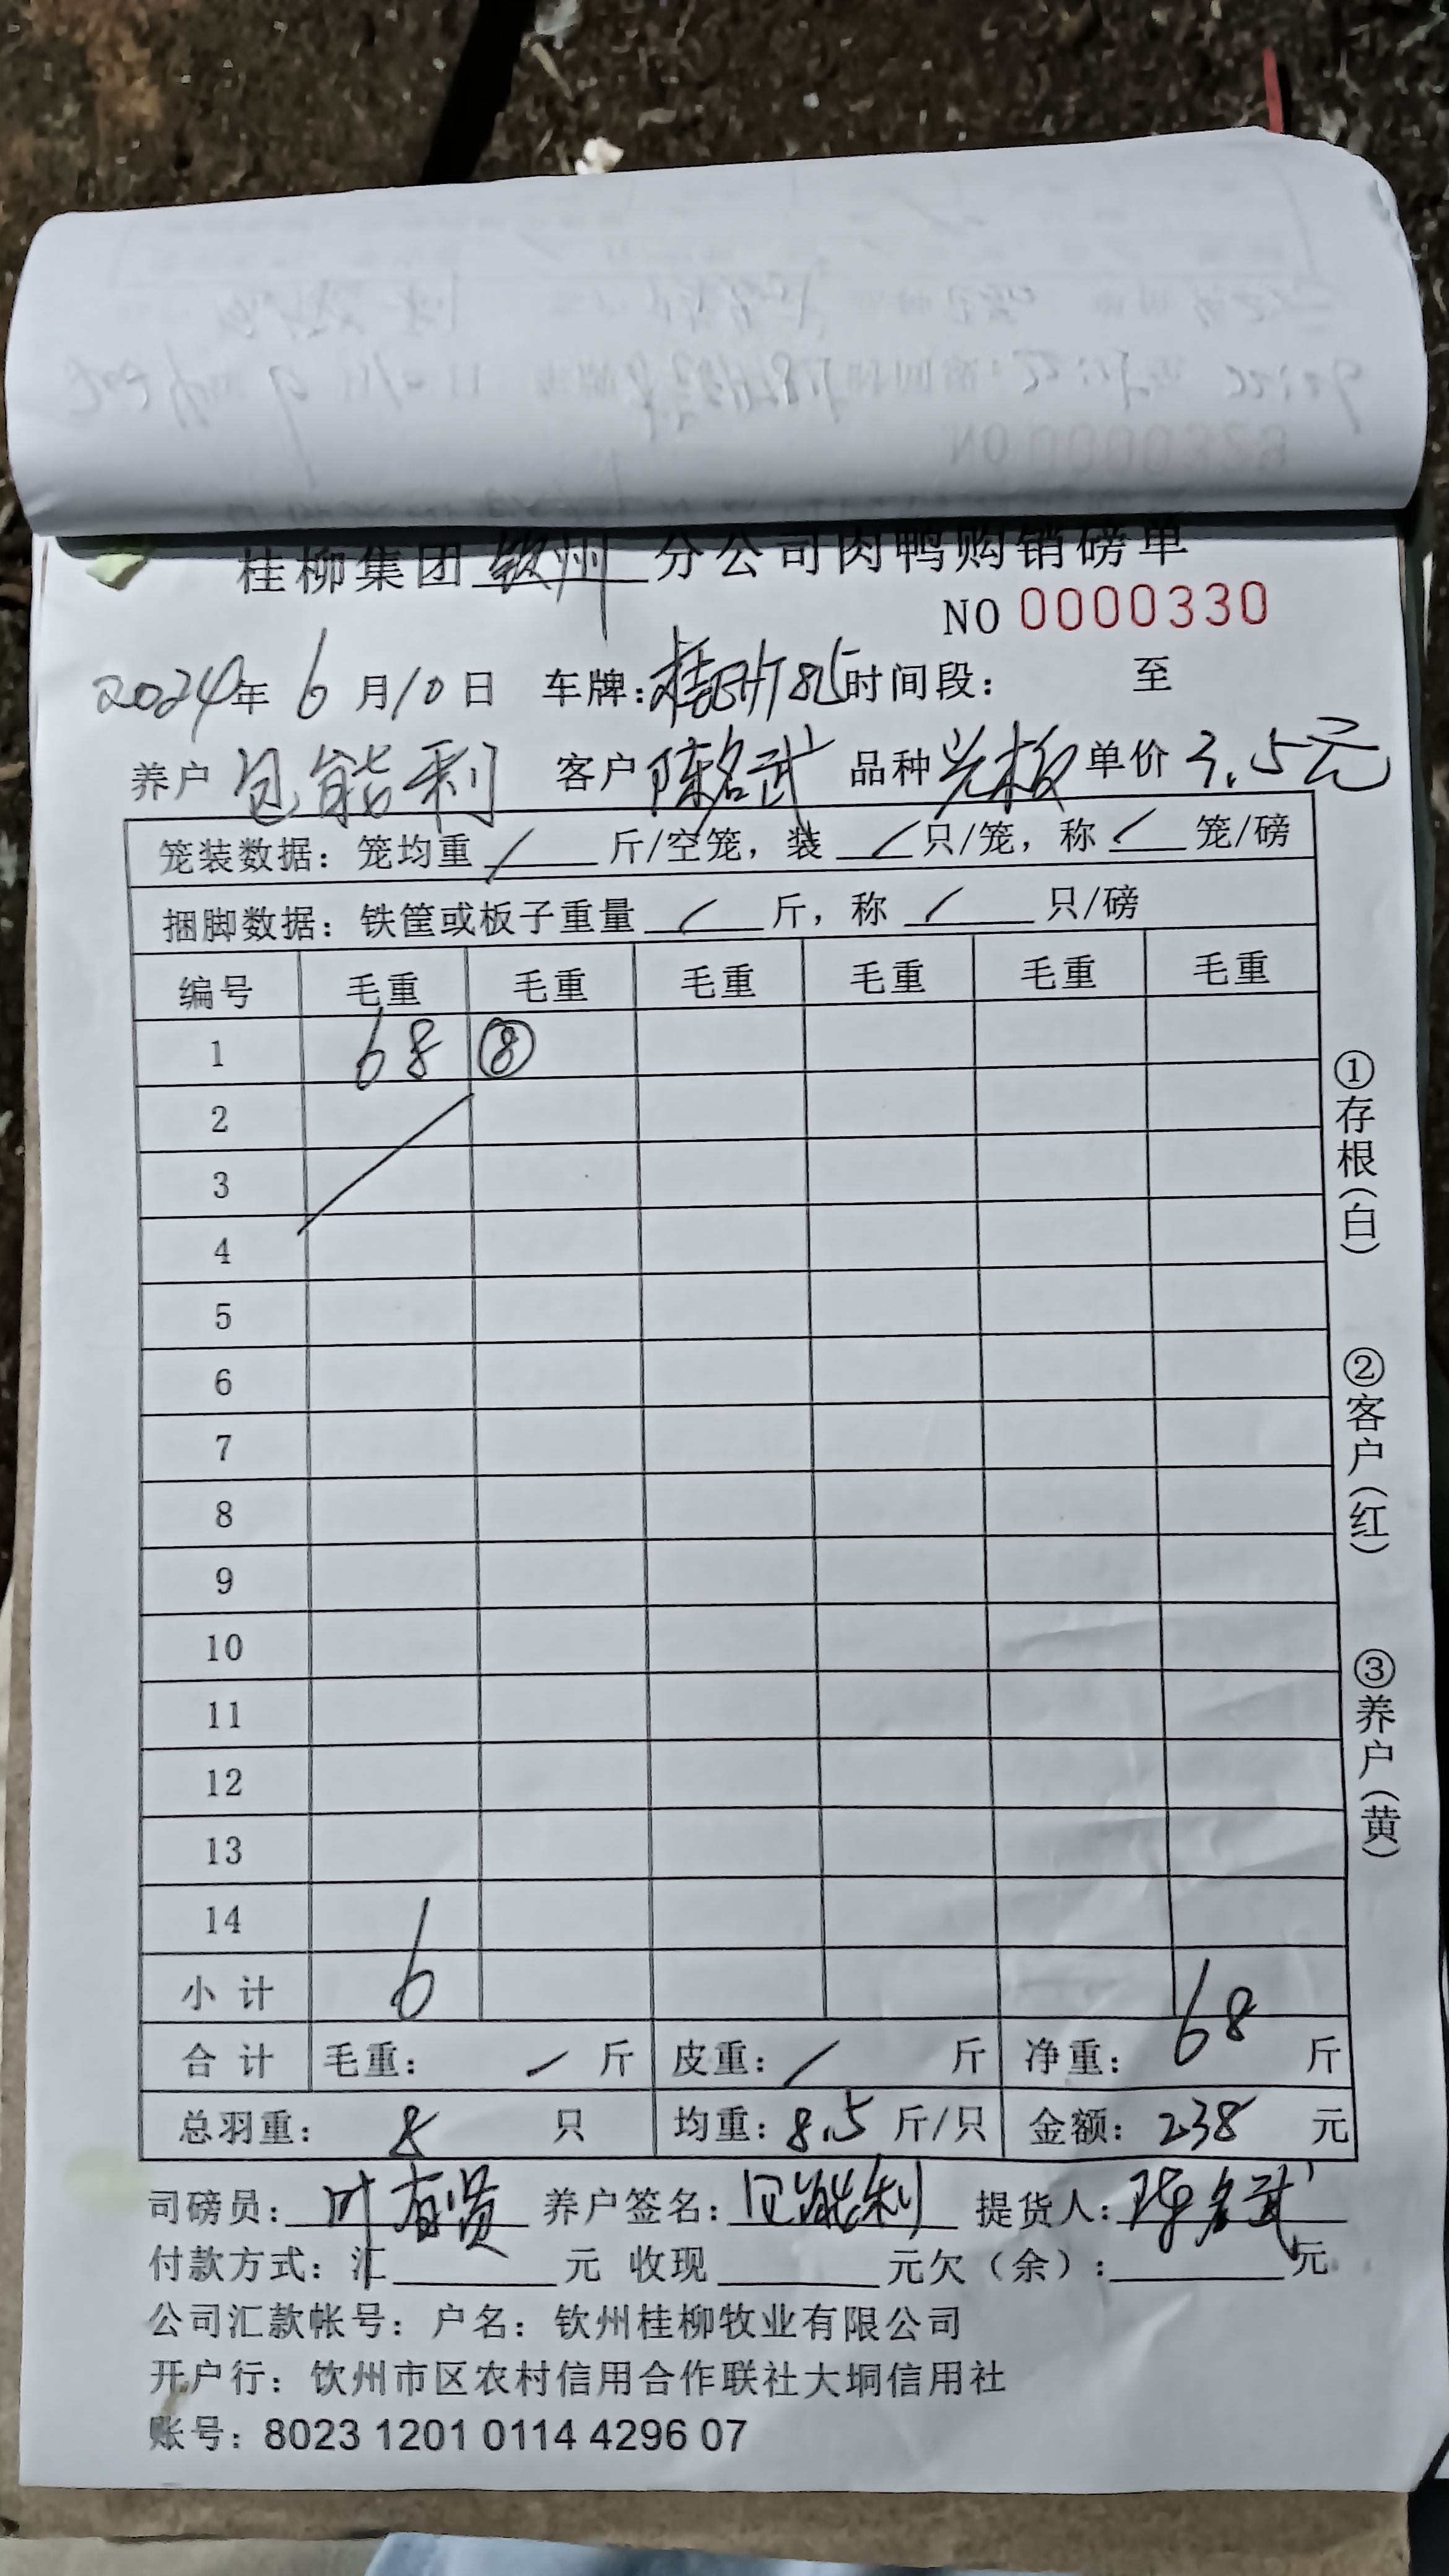 桂柳集团 钦州 分公司肉鸭购销磅单
NO 0000330
2024年 6 月 10 日 车牌: 时间段: 至
养户 包能利 客户 陈名武 品种 单价 3.5元
笼装数据: 笼均重 / 斤/空笼, 装 / 只/笼, 称 / 笼/磅
捆脚数据: 铁筐或板子重量 / 斤, 称 / 只/磅
编号 毛重 毛重 毛重 毛重 毛重 毛重
1 68 ⑧
2
3
4
5
6
7
8
9
10
11
12
13
14
小计 6 68
合计 毛重: / 斤 皮重: / 斤 净重: 斤
总羽重: 8 只 均重: 8.5 斤/只 金额: 238 元
司磅员: 叶有贤 养户签名: 包能利 提货人: 陈名武
付款方式: 汇 元 收现 元欠(余): 元
公司汇款帐号: 户名: 钦州桂柳牧业有限公司
开户行: 钦州市区农村信用合作联社大垌信用社
账号: 8023 1201 0114 4296 07
①存根(白)
②客户(红)
③养户(黄)